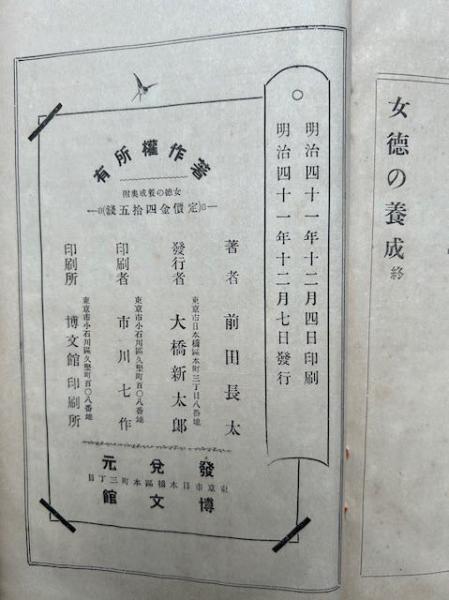 女徳の養成終
明治四十一年十二月四日印刷
明治四十一年十二月七日發行
著作權所有
女徳の養成奥附
(定價金四拾五錢)
著者 前田長太
東京市日本橋區本町三丁目八番地
發行者 大橋新太郎
東京市小石川區久堅町百〇八番地
印刷者 市川七作
東京市小石川區久堅町百〇八番地
印刷所 博文館印刷所
發兌元
東京市日本橋區本町三丁目
博文館